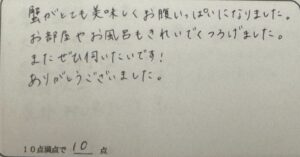 蟹がとても美味しくお腹いっぱいになりました。
お部屋やお風呂もきれいでくつろげました。
またぜひ伺いたいです!
ありがとうございました。
10点満点で 10 点